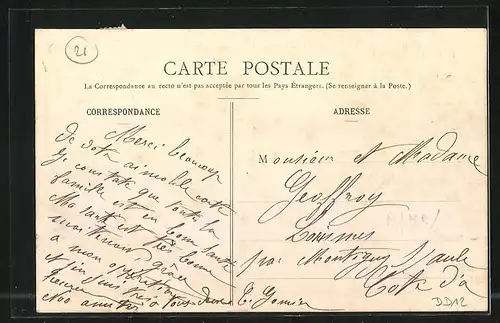 21
CARTE POSTALE
La Correspondance au recto n'est pas acceptée par tous les Pays Etrangers. (Se renseigner à la Poste.)
CORRESPONDANCE
Merci beaucoup
de votre aimable carte
je constate que toute la
famille est en bonne santé
Ma santé est très bonne
maintenant, grâce
à mon opération
et j'en suis très
heureux
à tous deux
ADRESSE
Monsieur et Madame
Geoffroy
par Montigny s/ Aube
Côte d'Or
DD12